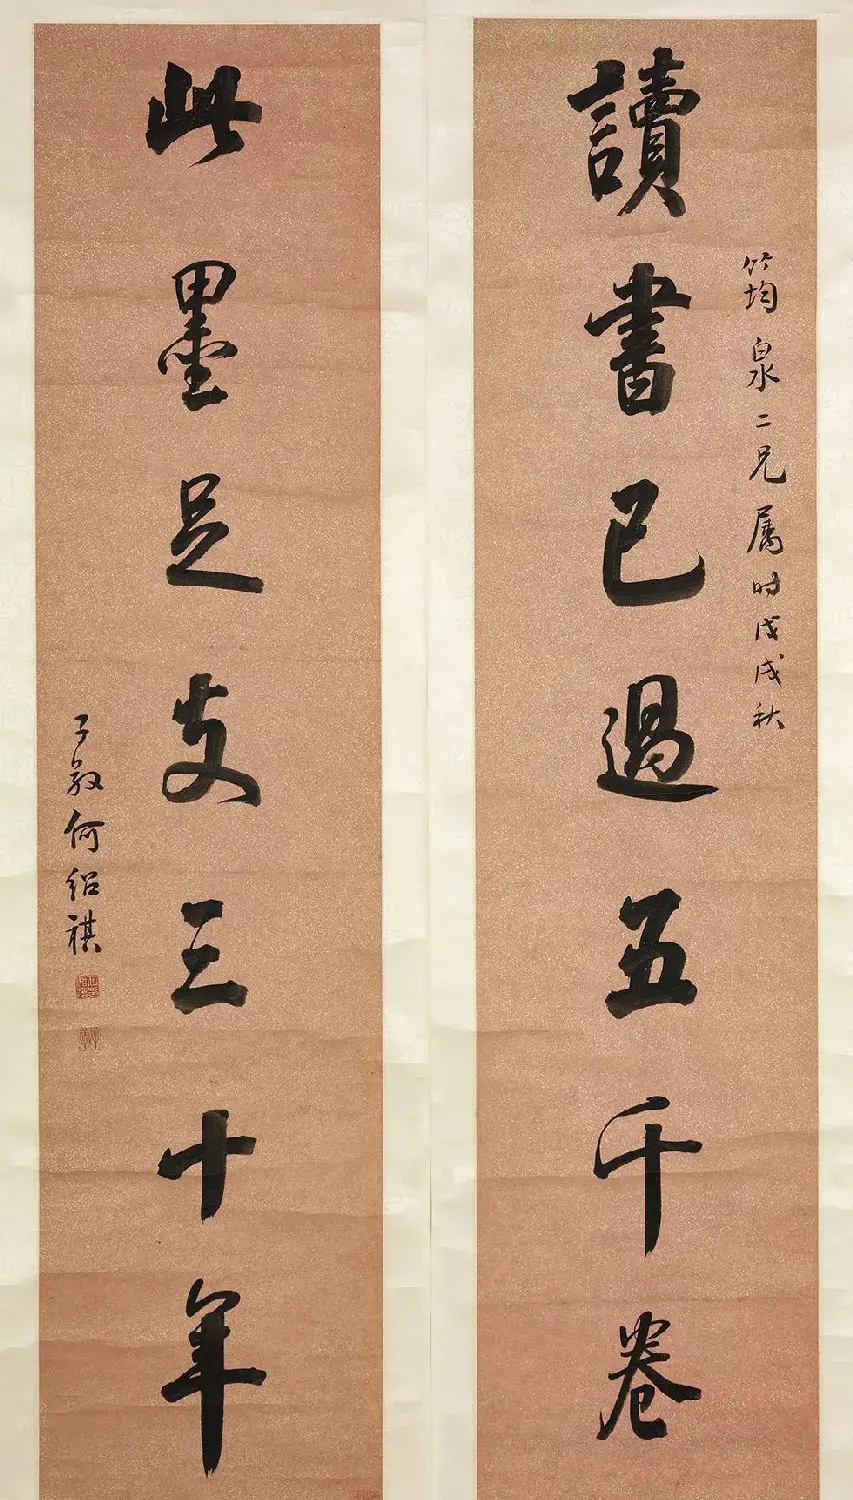 讀書已過五千卷
筠泉二兄属时戊戌秋
此墨足支三十年
子毅何紹祺